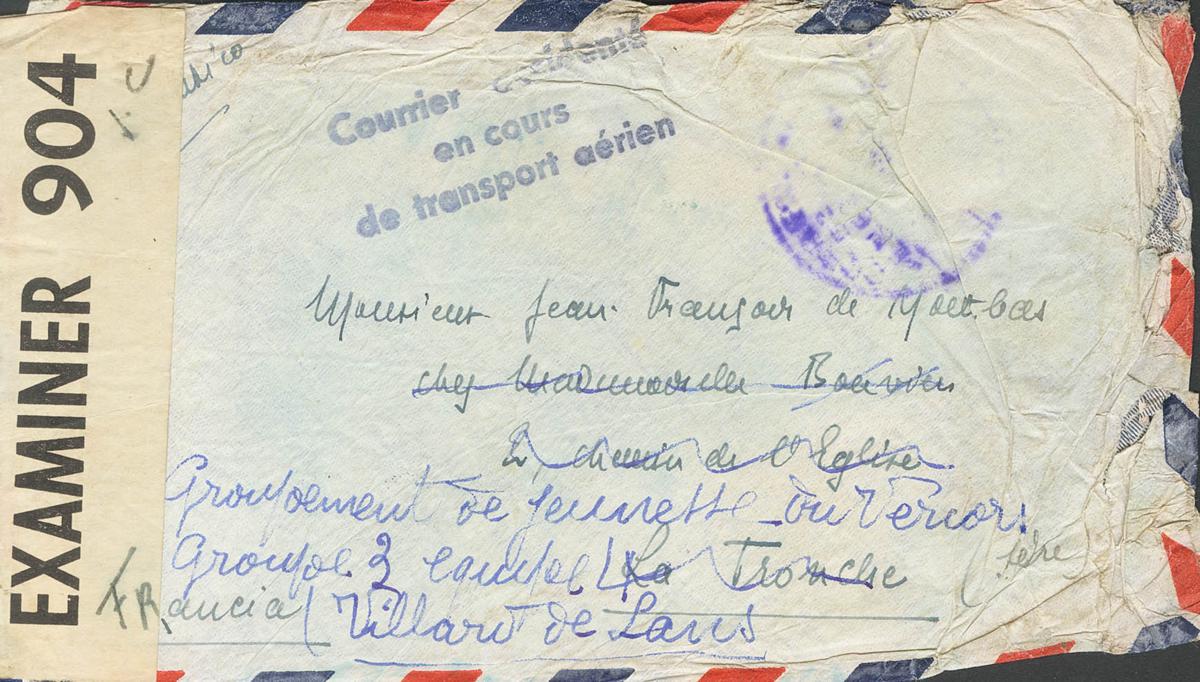 EXAMINER 904
Courrier accidenté
en cours
de transport aérien
Monsieur Jean-François de Montbas
chez Mademoiselle Bouvier
2, chemin de l'Eglise
Groupement de jeunesse du Vercors
Groupe 3 equipe 4 La Tronche (Isère
FRancia (Villard de Lans